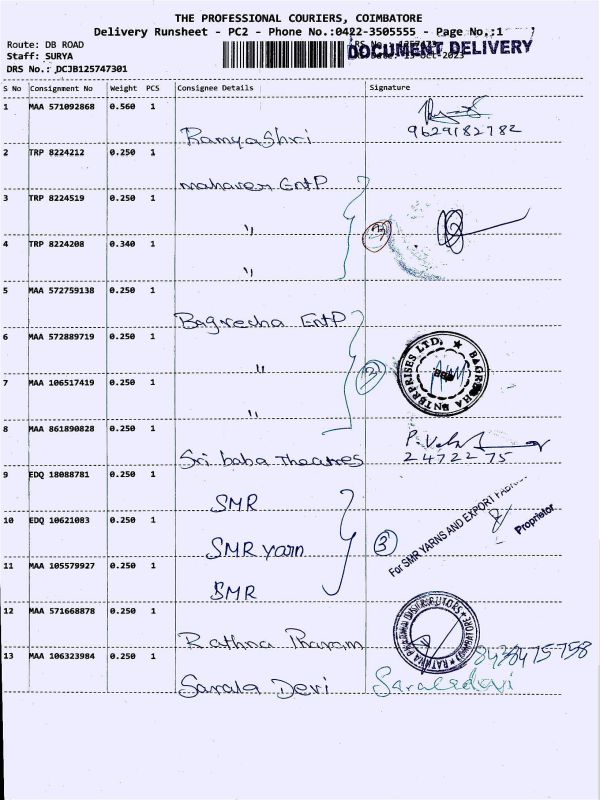 THE PROFESSIONAL COURIERS, COIMBATORE
Delivery Runsheet - PC2 - Phone No.:0422-3505555 - Page No.:1
Route: DB ROAD
DOCUMENT DELIVERY
Staff: SURYA
DRS No.: DCJB125747301
S No Consignment No Weight PCS Consignee Details Signature
1 MAA 571092868 0.560 1
Ramyashri 9629182782
2 TRP 8224212 0.250 1
mahaveer EntP
3 TRP 8224519 0.250 1
"
4 TRP 8224208 0.340 1
"
5 MAA 572759138 0.250 1
Bagrecha EntP
6 MAA 572889719 0.250 1
"
7 MAA 106517419 0.250 1
"
8 MAA 861890828 0.250 1
Sri baba Theatres 2472275
9 EDQ 18088781 0.250 1
SMR
10 EDQ 10621083 0.250 1
SMR yarn 3
For SMR YARNS AND EXPORT
Proprietor
11 MAA 105579927 0.250 1
SMR
12 MAA 571668878 0.250 1
Rathna Pharam
13 MAA 106323984 0.250 1
8438475758
Sarala Devi Saraladevi